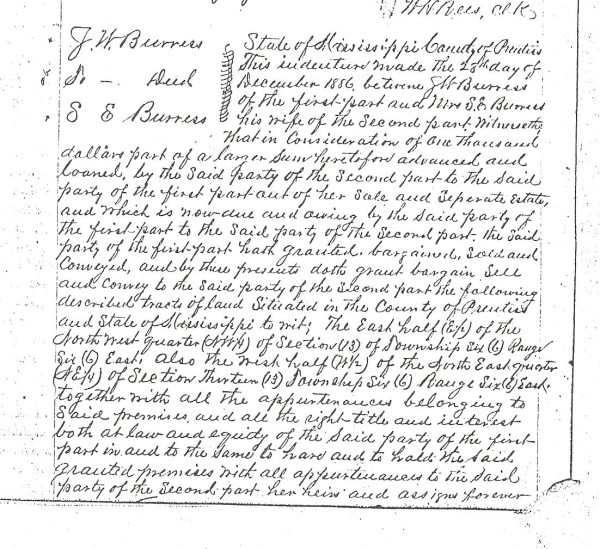 W H Rees, clk
J. W. Burress
To - Deed
S E Burress
State of Mississippi County of Prentiss
This indenture made the 28th day of
December 1886. between J W Burress
of the first part and Mrs S. E. Burress
his wife of the Second part. Witnesseth
that in Consideration of One thousand
dollars part of a larger Sum heretofore advanced and
loaned, by the Said party of the Second part to the Said
party of the first part out of her Sole and Seperate Estate,
and which is now due and owing by the Said party of
the first part to the Said party of the Second part. the Said
party of the first part hath granted. bargained, Sold and
Conveyed, and by these presents doth grant bargain Sell
and Convey to the Said party of the Second part the following
described tracts of land Situated in the County of Prentiss
and State of Mississippi to wit; The East half (E/2) of the
North West quarter (NW/4) of Section (13) of Township Six (6) Range
Six (6) East; also the West half (W/2) of the North East quarter
(NE/4) of Section Thirteen (13) Township Six (6) Range Six (6) East.
together with all the appurtenances belonging to
Said premises. and all the right title and interest
both at law and equity of the Said party of the first
part in and to the same to have and to hold the Said
granted premises with all appurtenances to the Said
party of the Second part her heirs and assigns forever